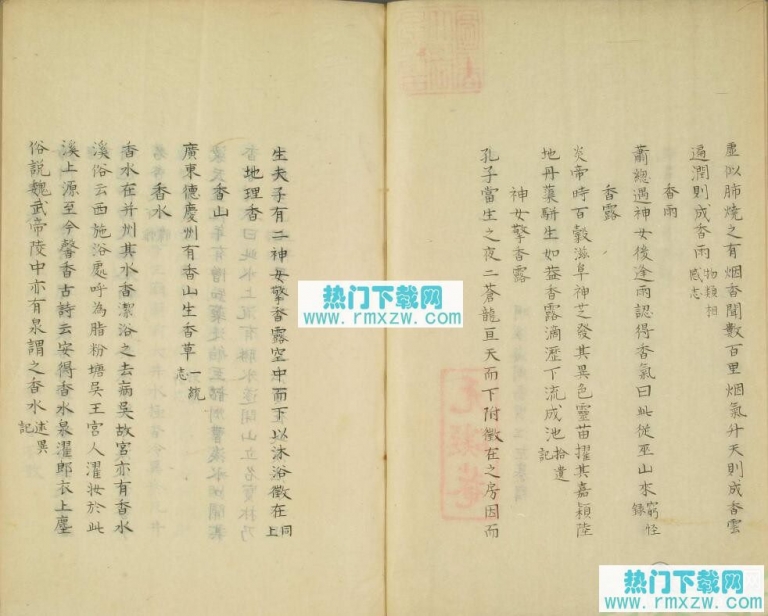 虛似肺燒之有烟香聞數百里烟氣升天則成香雲
遍潤則成香雨物類相感志
香雨
蕭總遇神女後逢雨認得香氣曰此從巫山來窮怪錄
香露
炎帝時百穀滋阜神芝發其異色靈苗擢其嘉穎陸
地丹蕖駢生如蓋香露滴瀝下流成池拾遺記
神女擎香露
孔子當生之夜二蒼龍亘天而下附徵在之房因而
生夫子有二神女擎香露空中而下以沐浴徵在同上
地理香
香山
廣東德慶州有香山生香草一統志
香水
香水在并州其水香潔浴之去病吳故宮亦有香水
溪俗云西施浴處呼為脂粉塘吳王宮人濯妝於此
溪上源至今馨香古詩云安得香水泉濯郎衣上塵
俗說魏武帝陵中亦有泉謂之香水述異記
热门下载网
www.rmxzw.com
热门下载网
www.rmxzw.com